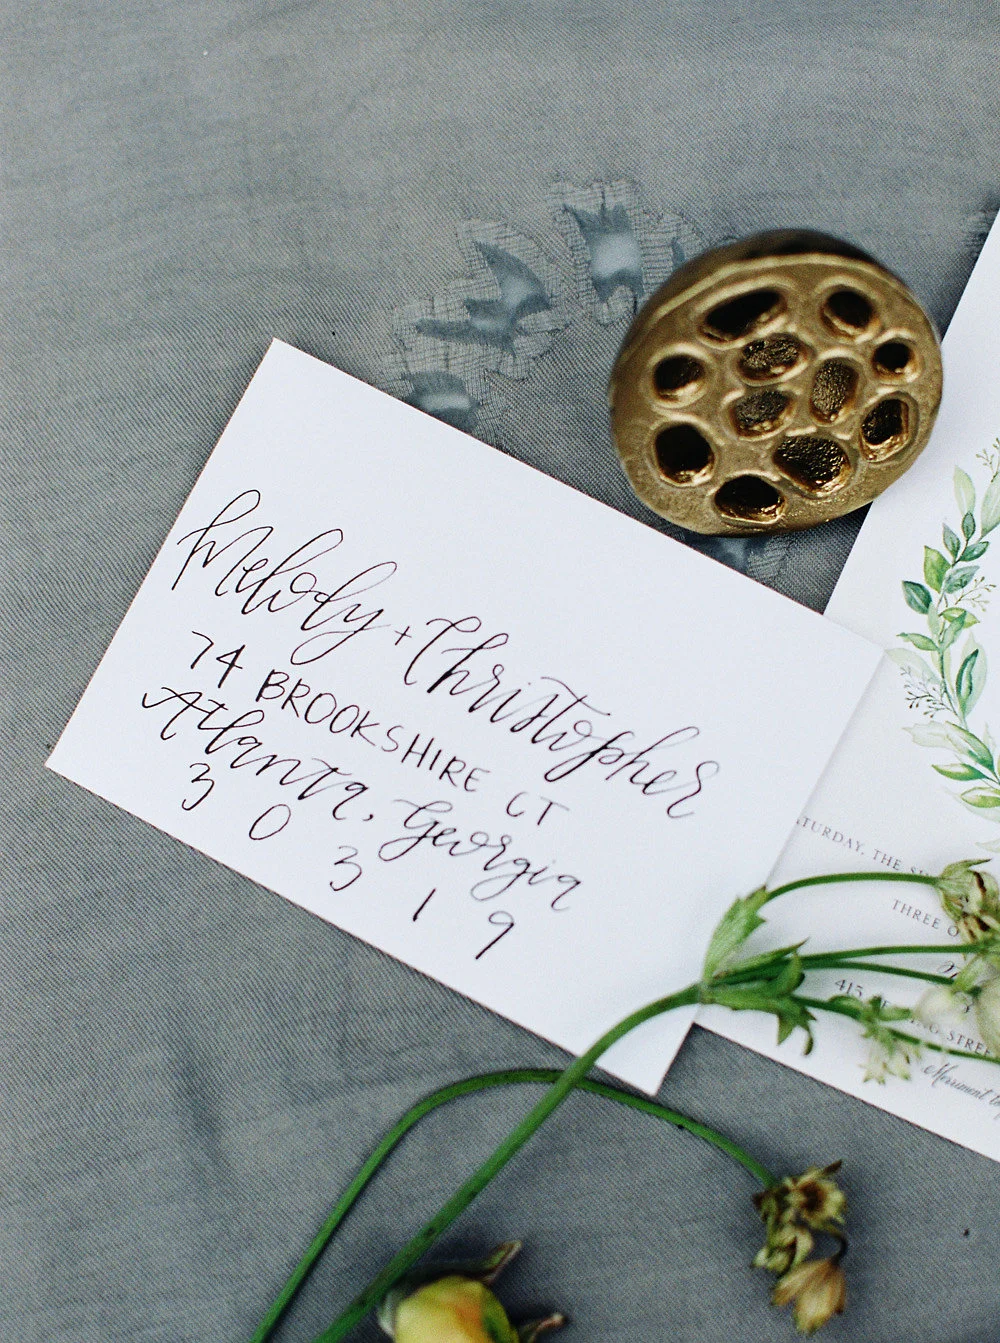 Melody + Christopher
74 BROOKSHIRE CT
Atlanta, Georgia
3 0 3 1 9
THE
THREE
413
STREE
Merriment